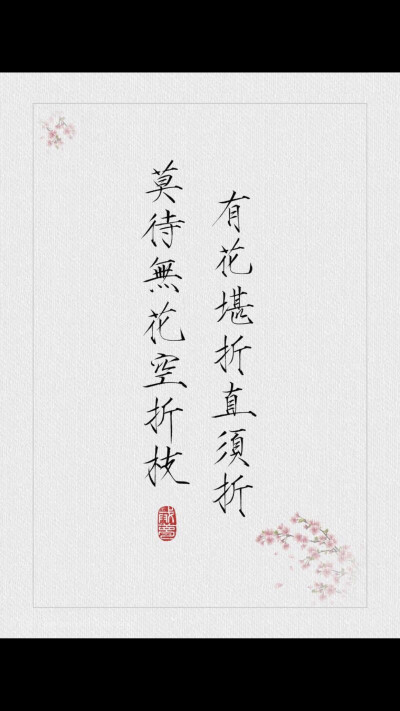 有花堪折直須折
莫待無花空折技